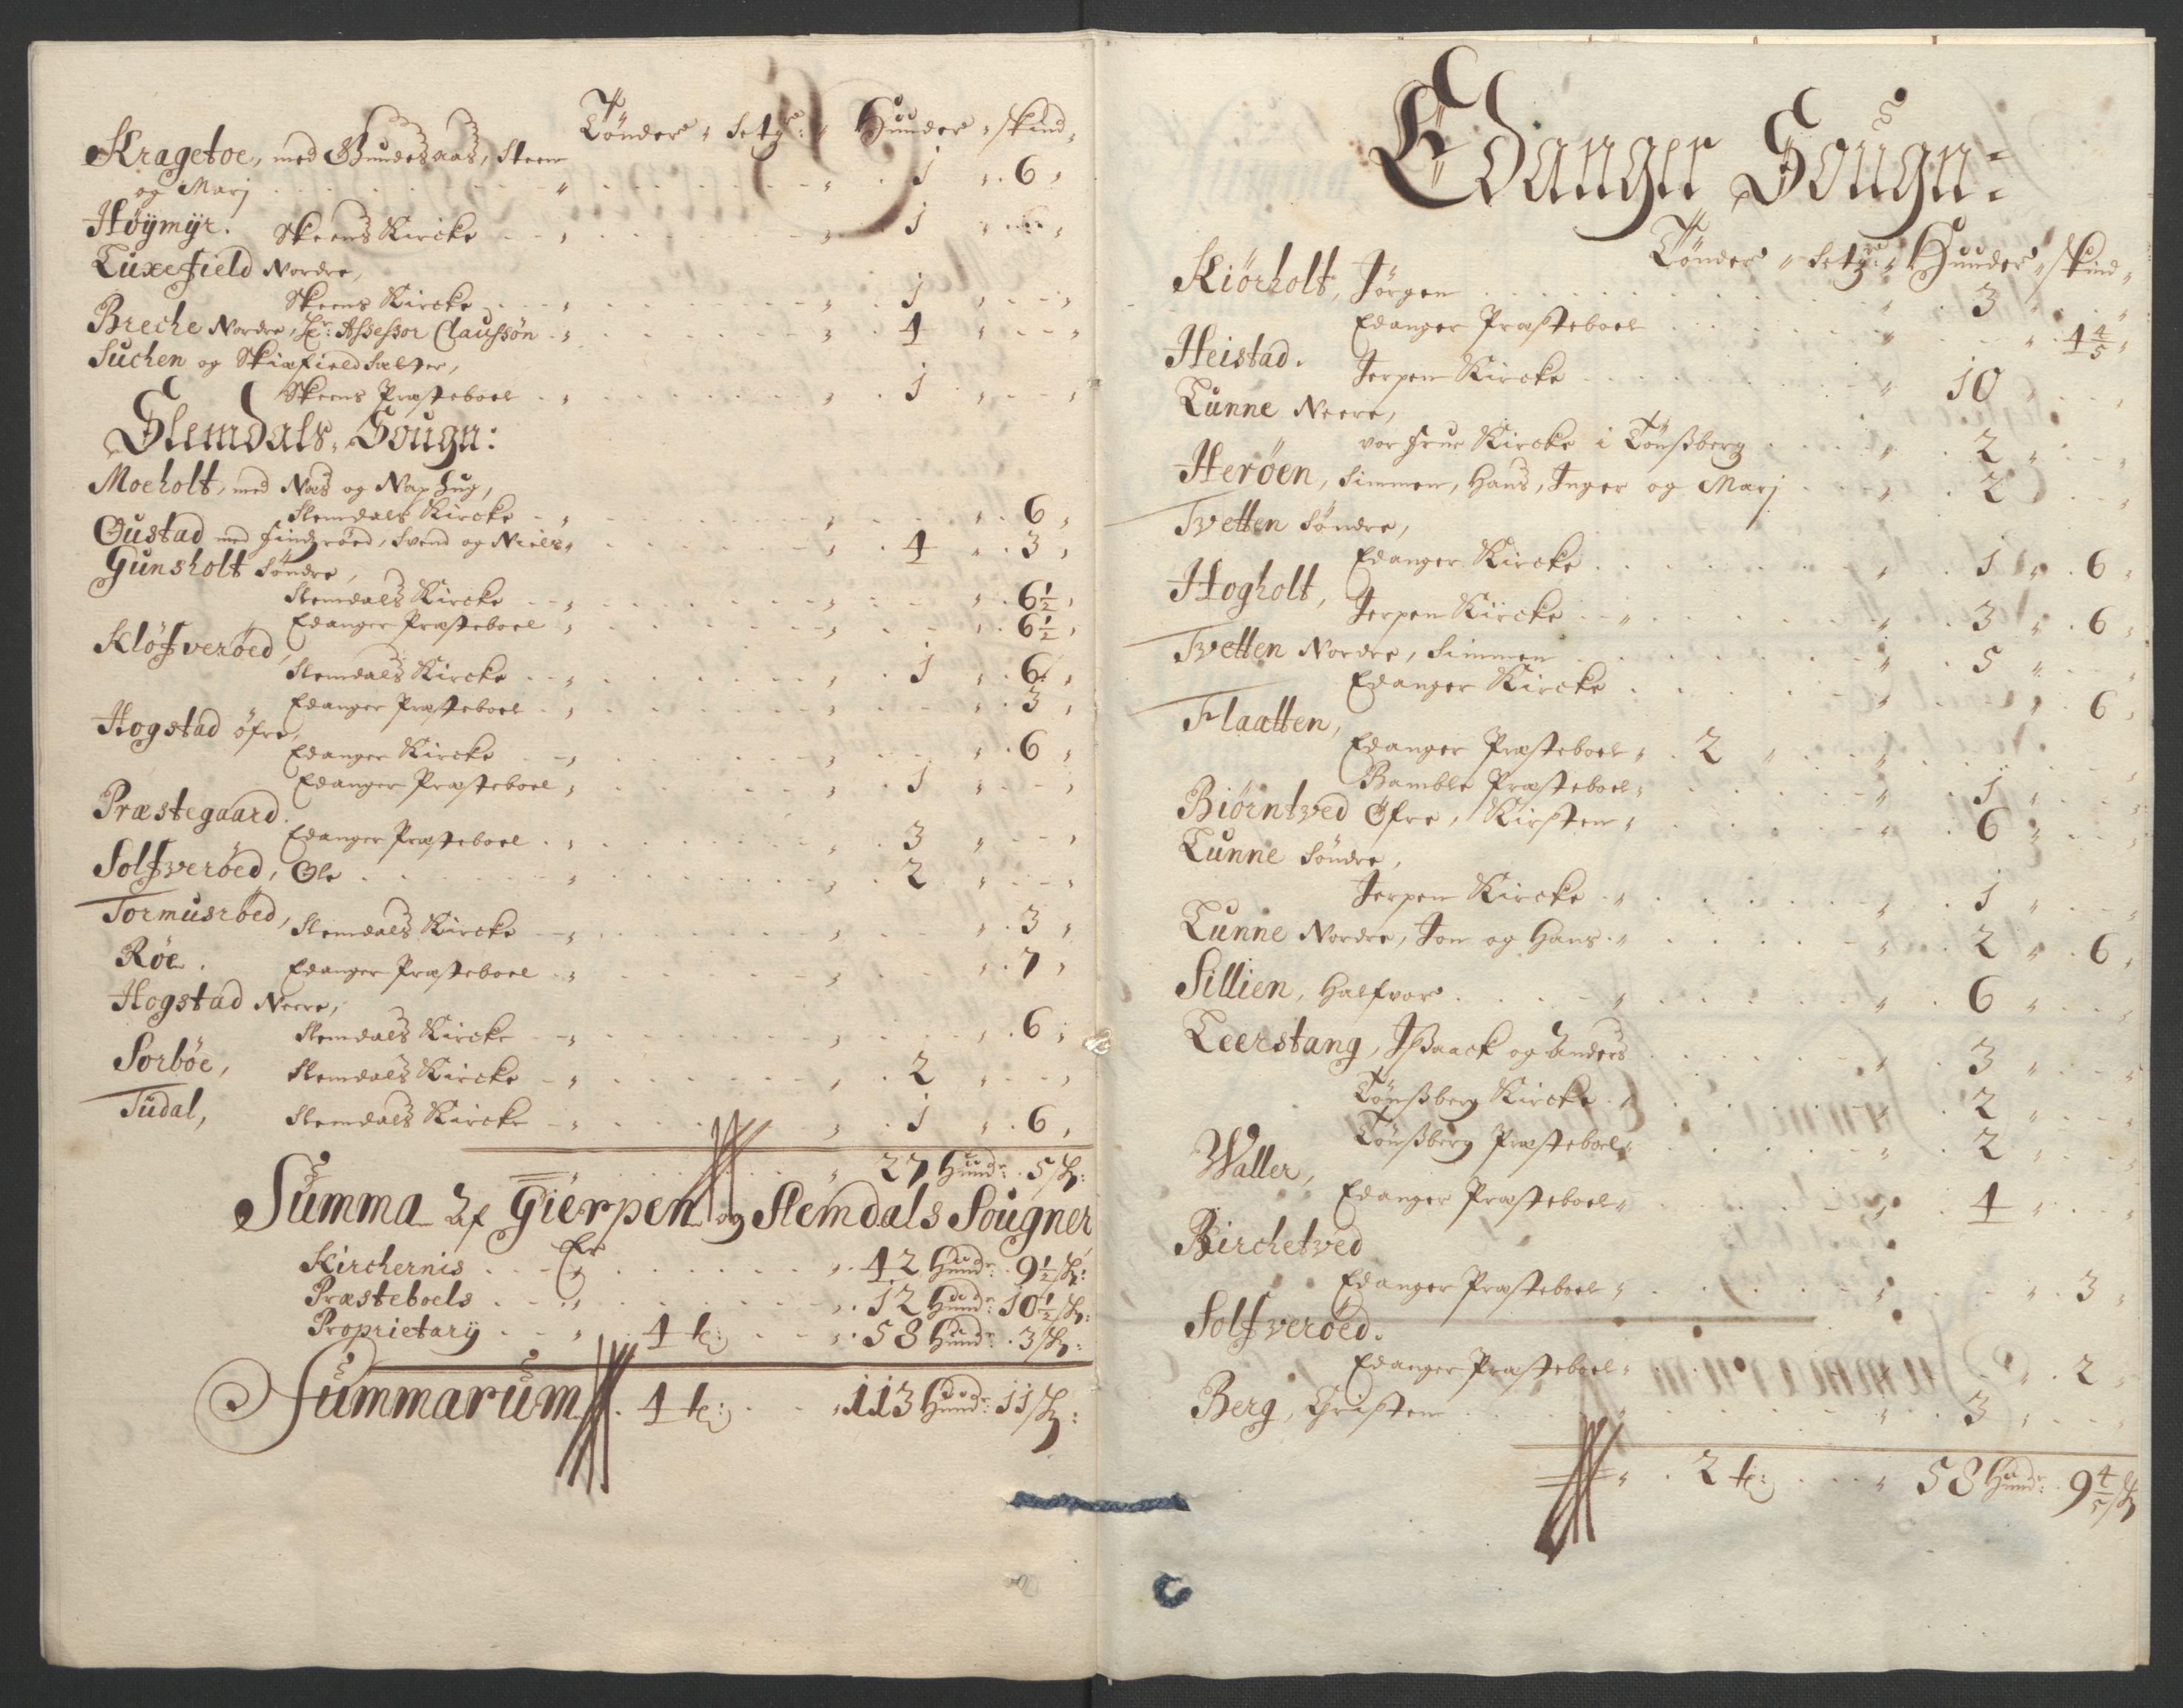 Tönder " Setg: " Hunder " Skind "
Kragetoe, med Gundesaas, Steen
og Marj " " 1 " 6 "
Höÿmÿr. Skeens Kircke " " 1 "
Luxefield Nordre,
Skeens Kircke " " 1 "
Breche Nordre, Hr: Assessor Claussön " " 4 " "
Suchen og Skiefield Sælter,
Skeens Præsteboel " " 1 " "
Slemdals Sougn:
Moeholt, med Næs og Naphug,
Slemdals Kircke " " " 6 "
Gustad med Findzröed, Svend og Niels " " 4 " 3 "
Gunsholt Söndre,
Slemdals Kircke " " " 6½ "
Edanger Præsteboel " " " 6½ "
Klöfveröed,
Slemdals Kircke " " 1 " 6 "
Edanger Præsteboel " " " 3 "
Hogstad öfre,
Edanger Kircke " " " 6 "
Edanger Præsteboel " " 1 " "
Præstegaard.
Edanger Præsteboel " " 3 " "
Solfveröed, Ole " " 2 " "
Tormusröed, Slemdals Kircke " " " 3 "
Röe. Edanger Præsteboel " " " 7 "
Hogstad Neere,
Slemdals Kircke " " " 6 "
Sorböe, Slemdals Kircke " " 2 " "
Tudal, Slemdals Kircke " " 1 " 6 "
" " 27 Hund: 5 Sk:
Summa Af Gierpen og Slemdals Sougner
Er
Kirchernis " " 42 Hund: 9½ Sk:
Præsteboels " " 12 Hund: 10½ Sk:
Proprietarÿ " 4 t: " 58 Hund: 3 Sk:
Summarum 4 t: " 113 Hund: 11 Sk:
Edanger Sougn:
Tönder " Setg: " Hunder " Skind "
Kiörholt, Jörgen " 3 " "
Edanger Præsteboel " " 4 4/5 "
Heistad. Jerpen Kircke " 10 "
Lunne Neere,
vor Frue Kircke i Tönßberg " 2 " "
Heröen, Simmen, Hans, Inger og Marj " 2 "
Tvetten Söndre,
Edanger Kircke " 1 " 6 "
Hogholt, Jerpen Kircke " " 3 " 6 "
Tvetten Nordre, Simmen " 5 " "
Edanger Kircke " " 6 "
Flaatten,
Edanger Præsteboel " 2 " " "
Bamble Præsteboel " " 1 " "
Biörntved Öfre, Kirsten " " 6 " "
Lunne Söndre,
Jerpen Kircke " " 1 " "
Lunne Nordre, Jon og Hans " " 2 " 6 "
Sillien, Halfvor " " 6 " "
Leerstang, Ißaack og Anders " 3 " "
Tönßberg Kircke " " 2 " "
Tönßberg Præsteboel " " 2 " "
Waller,
Edanger Præsteboel " " 4 " "
Birchetved
Edanger Præsteboel " " " 3 "
Solfveröed.
Edanger Præsteboel " " " 2 "
Berg, Christen " " 3 " "
" 2 t: " 58 Hund: 9 4/5 Sk